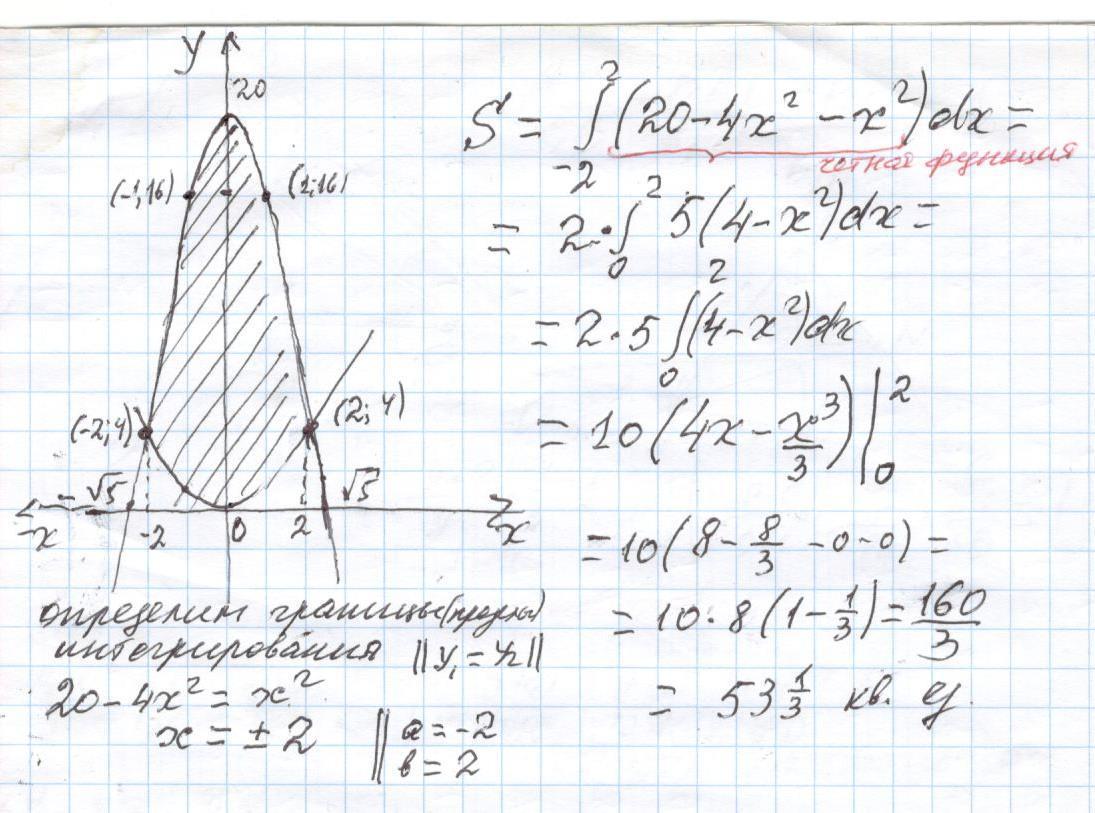 y
20
(-1,16) (1;16)
(-2;4) (2; 4)
-√5 √5
-x -2 0 2 x
определим границы (пределы)
интегрирования ||y₁ = y₂||
20-4x² = x²
x = ± 2 || a = -2
b = 2
S = ∫₋₂² (20-4x² - x²)dx =
четная функция
= 2·∫₀² 5(4-x²)dx =
= 2·5 ∫₀² (4-x²)dx
= 10(4x - x³/3)|₀²
= 10(8 - 8/3 - 0 - 0) =
= 10·8(1 - 1/3) = 160/3
= 53 1/3 кв. ед.